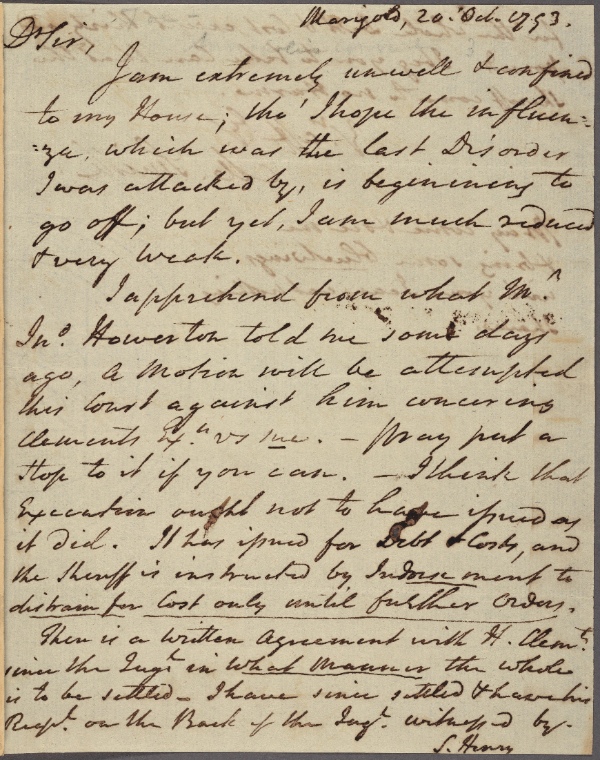 Marigold, 20. Oct. 1793.
Dr Sir,
I am extremely unwell & confined
to my House; tho' I hope the influen-
-za, which was the last Disorder
I was attacked by, is beginining to
go off; but yet, I am much reduced
& very weak.
I apprehend from what Mr.
Jno. Howerton told me some days
ago, a Motion will be attempted
this Court against him concering
Clements Exn. vs me. — pray put a
stop to it if you can. — I think that
Execution ought not to have issued as
it did. It has issued for Debt & Costs, and
the Sheriff is instructed by Indorsement to
distrain for Cost only until further Orders.
There is a written Agreement with H. Clemt.
since the Jugt. in what Manner the whole
is to be settled — I have since settled & have his
Rect. on the Back of the Jugt. witnessed by.
S. Henry